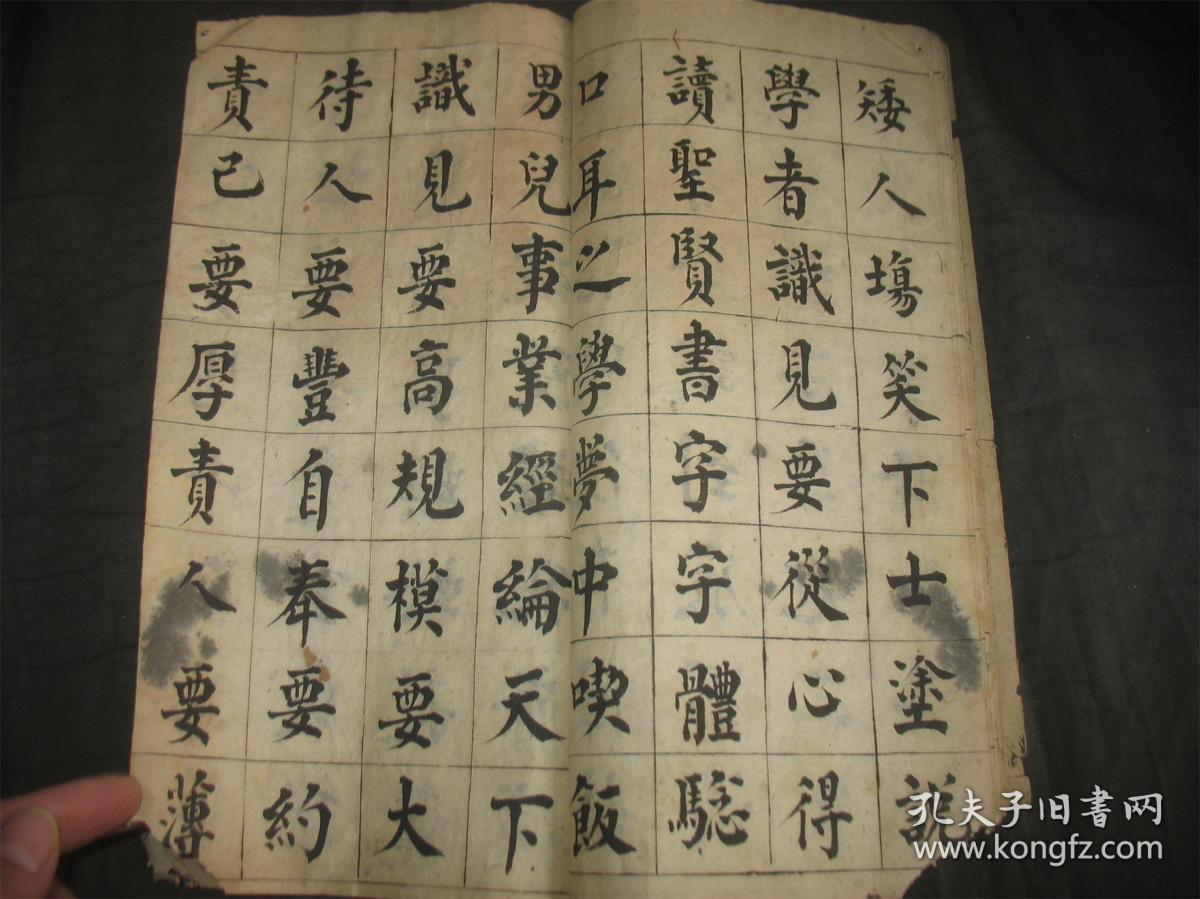 矮人塲笑下士塗説
學者識見要從心得
讀聖賢書字字體騐
口耳之學夢中喫飯
男兒事業經綸天下
識見要高規模要大
待人要豐自奉要約
責己要厚責人要薄
孔夫子旧书网
www.kongfz.com